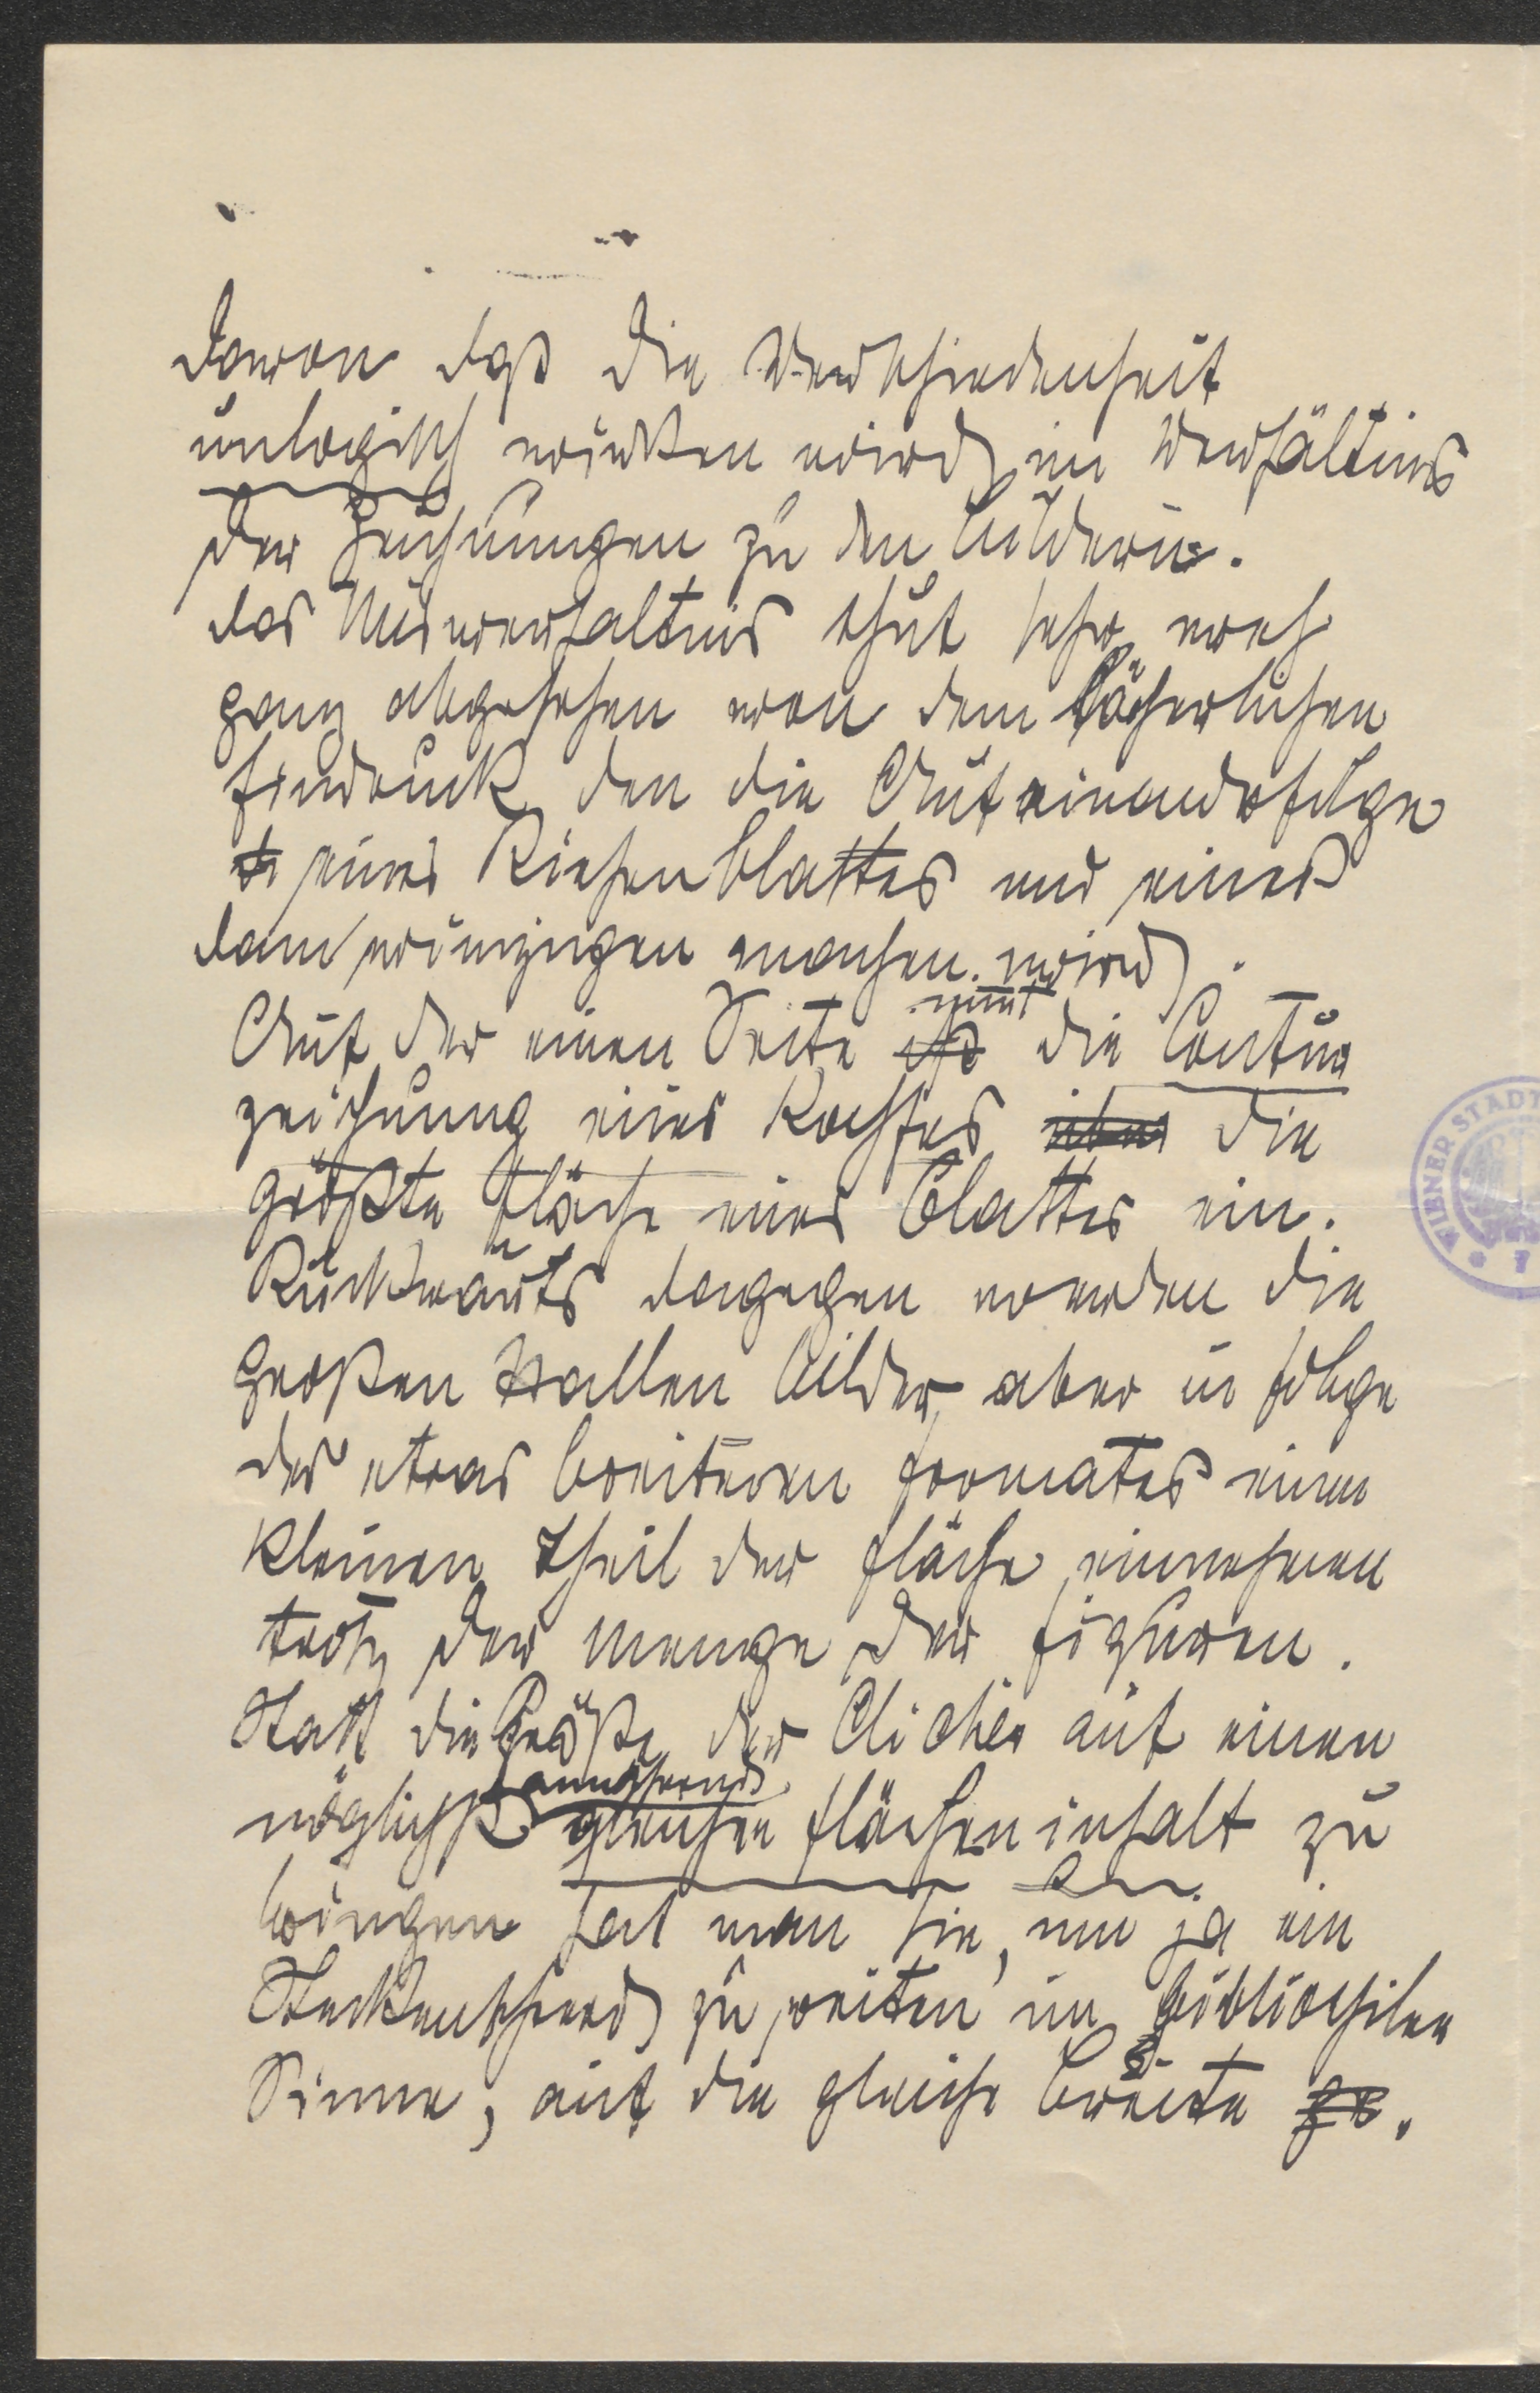 davon daß die Verschiedenheit
unlogisch wirken wird im Verhältnis
der Zeichnungen zu den Bildern.
das Misverhältnis thut sehr weh
ganz abgesehen von dem lächerlichen
Eindruck den die Aufeinanderfolge
eines Riesenblattes und eines
dann winzigen machen wird.
Auf der einen Seite nimt die Contur
zeichnung eines Kopfes die
größte Fläche eines Blattes ein.
Rückwärts dagegen werden die
großen Hallen bilder aber in folge
des etwas breiteren formates einen
kleinen Theil der fläche einnehmen
trotz der menge der figuren.
Statt die Größe der Clichés auf einen
möglichst annähernd gleichen flächeninhalt zu
bringen hat man sie, um ja ein
Steckenpferd zu reiten im bibliophilen
Sinne, auf die gleiche breite
WIENER STADT